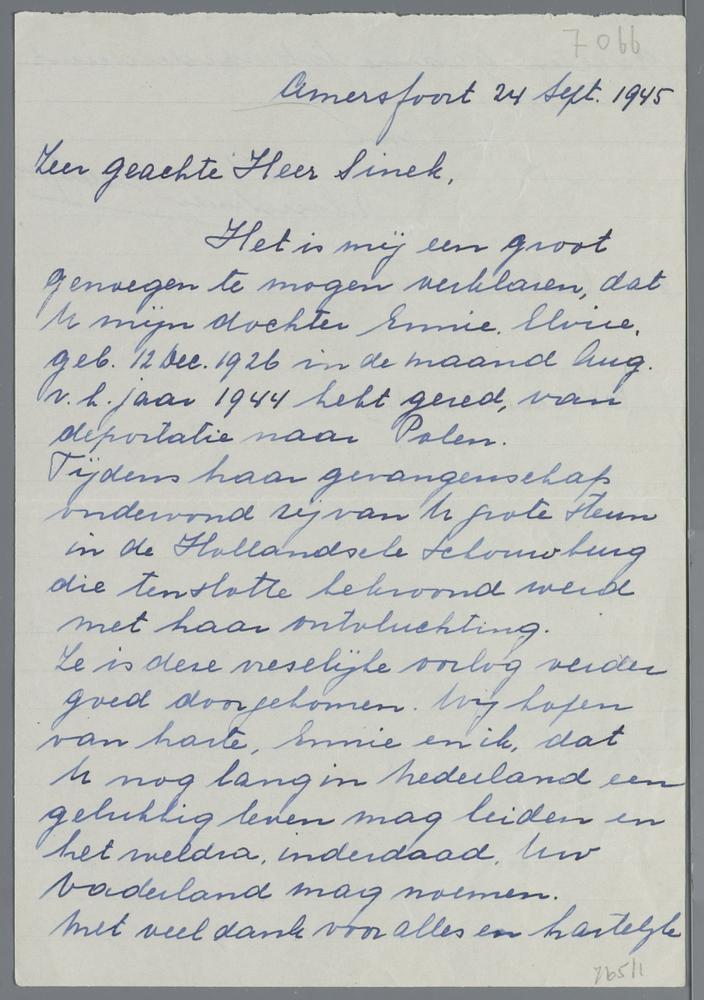 7066
Amersfoort 24 Sept. 1945
Zeer geachte Heer Sinek,
Het is mij een groot
genoegen te mogen verklaren, dat
U mijn dochter Ennie, Elvire,
geb. 12 Dec. 1926 in de maand Aug.
v. h. jaar 1944 hebt gered, van
deportatie naar Polen.
Tijdens haar gevangenschap
ondervond zij van U grote steun
in de Hollandsche Schouwburg
die tenslotte bekroond werd
met haar ontvluchting.
Ze is deze vreselijke oorlog verder
goed doorgekomen. Wij hopen
van harte, Ennie en ik, dat
U nog lang in Nederland een
gelukkig leven mag leiden en
het weldra, inderdaad, Uw
Vaderland mag noemen.
Met veel dank voor alles en hartelijke
765/1